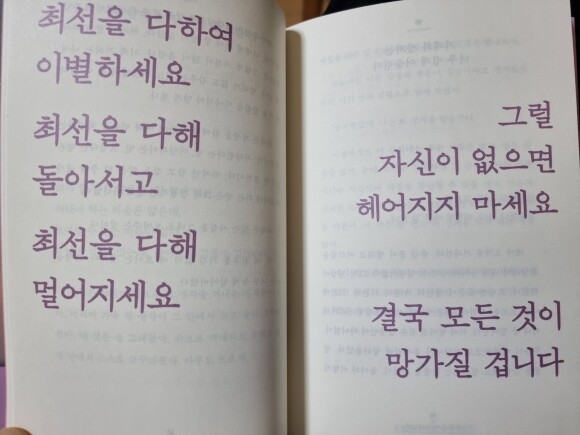 최선을 다하여
이별하세요
최선을 다해
돌아서고
최선을 다해
멀어지세요
그럴
자신이 없으면
헤어지지 마세요
결국 모든 것이
망가질 겁니다